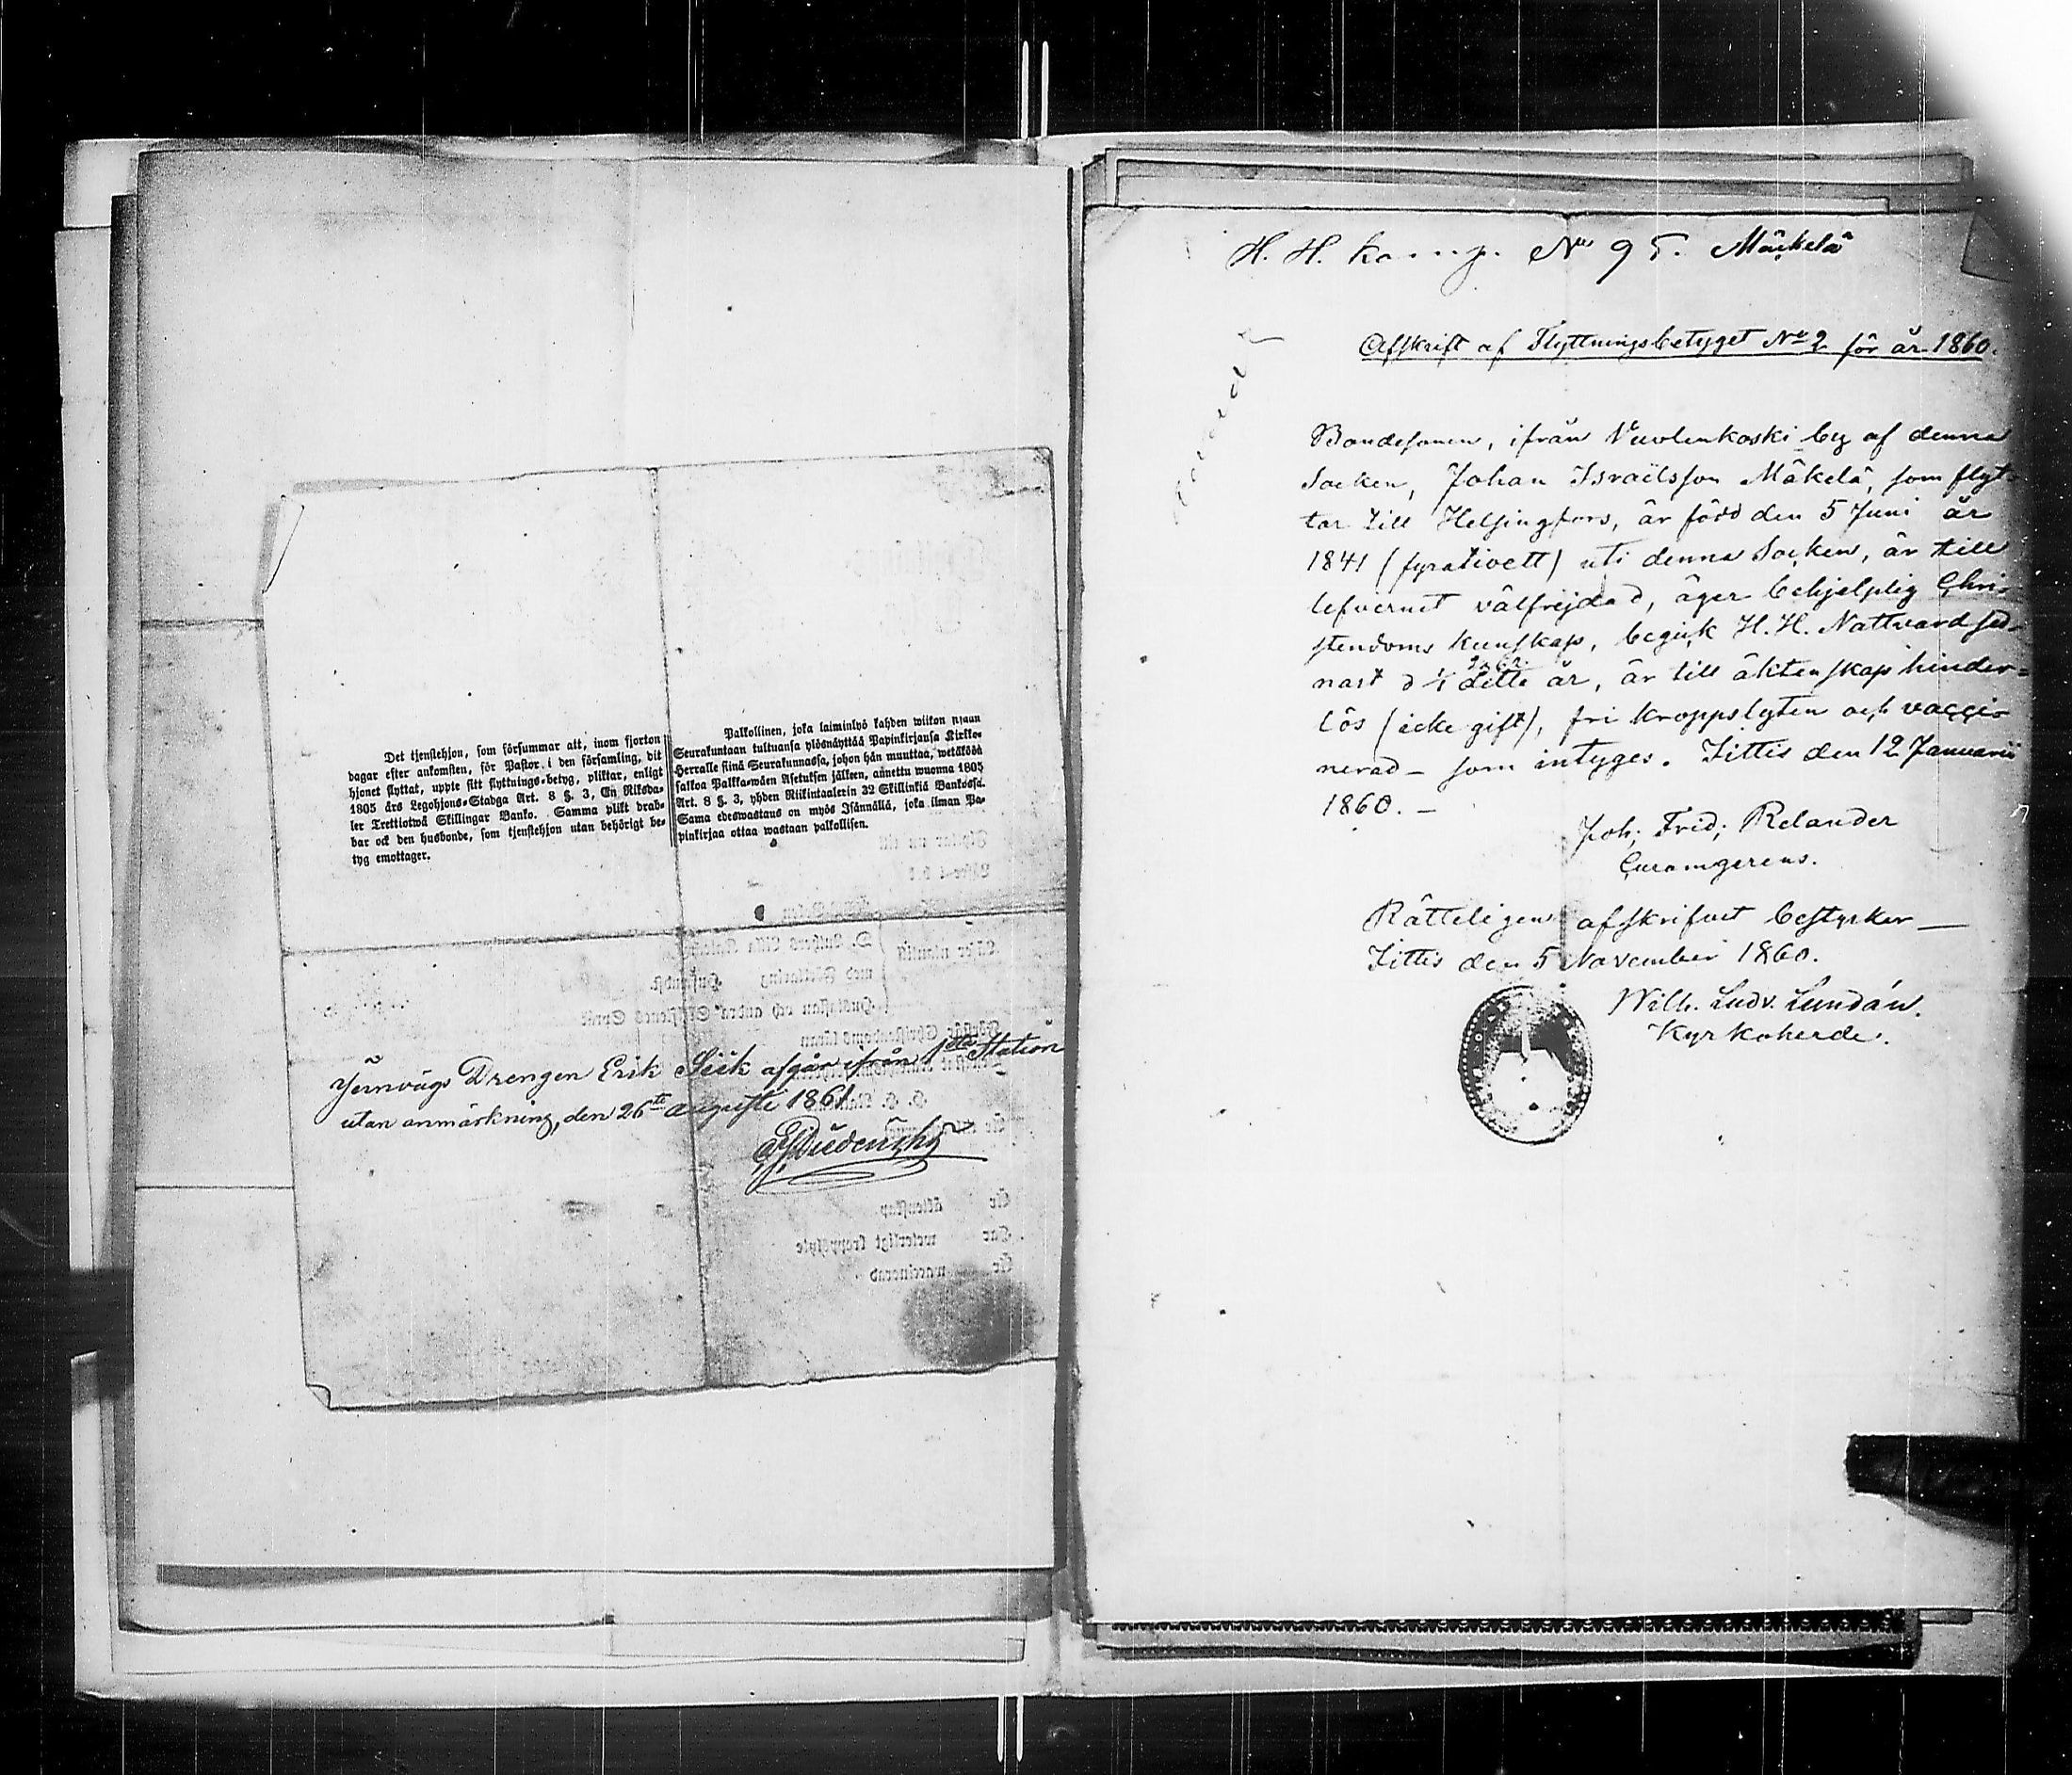 Det tjenstehjon, som försummar att, inom fjorton
dagar efter ankomsten, för Pastor i den församling, dit
hjonet flyttat, uppte sitt flyttnings-betyg, pliktar, enligt
1805 års Legohjons-Stadga Art. 8 §. 3, En Riksda-
ler Trettiotwå Skillingar Banko. Samma plikt drab-
bar ock den husbonde, som tjenstehjon utan behörigt be-
tyg emottager.
Palkollinen, joka laiminlyö kahden wiikon sisään
Seurakuntaan tultuansa ylösnäyttää Papinkirjansa Kirkko-
Herralle siinä Seurakunnassa, johon hän muuttaa, wetäköön
sakkoa Palkka-wäen Asetuksen jälkeen, annettu wuonna 1805
Art. 8 §. 3, yhden Riikintaalerin 32 Skillinkiä Bankossa.
Sama edeswastaus on myös Isännällä, joka ilman Pa-
pinkirjaa ottaa wastaan palkollisen.
Jernvägs Drengen Erik Seik afgår ifrån 1sta Station
utan anmärkning, den 26te augusti 1861.
H. H. komp. No 95. Mäkelä
Afskrift af Flyttningsbetyget No 2 för år 1860.
Bondesonen, ifrån Vuolenkoski by af denna
Socken, Johan Israëlsson Mäkelä, som flyt-
tar till Helsingfors, är född den 5 Juni år
1841 (fyrationett) uti denna Socken, är till
lefvernet välfrejdad, äger behjelplig Chri-
stendoms kunskap, begick H. H. Nattvard sed-
nast d 1/1 detta år, är till äktenskap hinder-
lös (icke gift), fri kroppslyten och vacci-
nerad – som intyges. Jittis den 12 Januarii
1860. –
Joh; Frid; Relander
Curamgerens.
Rätteligen afskrifvet bestyrker –
Jittis den 5 November 1860.
Wilh. Ludv. Lundán.
Kyrkoherde.